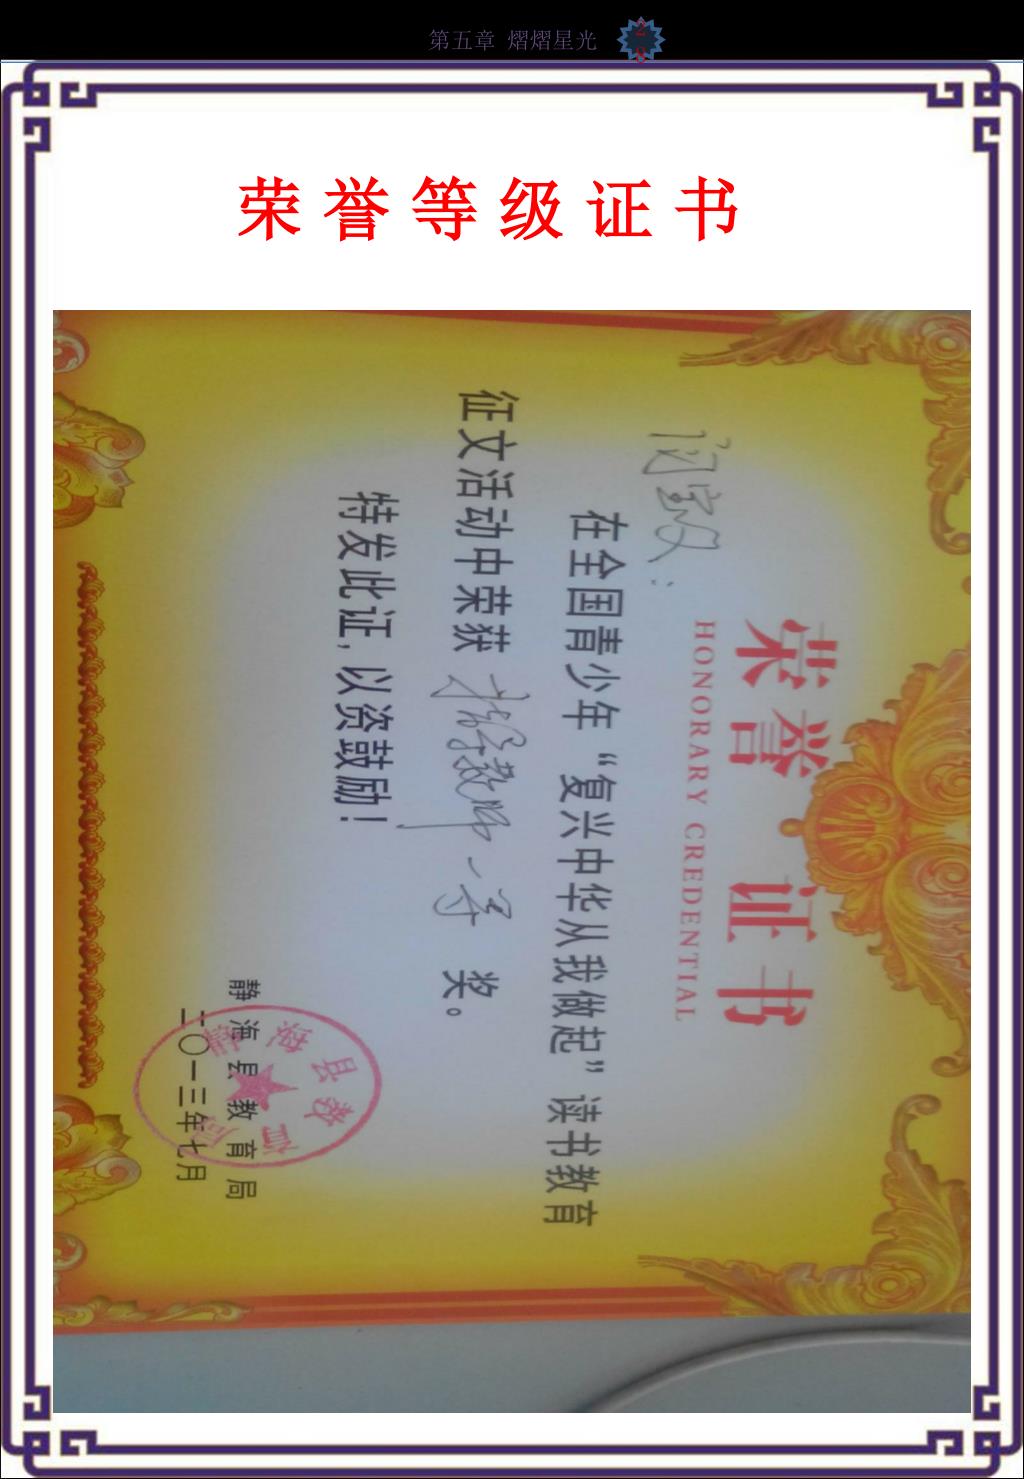 第五章 熠熠星光
荣誉等级证书
荣誉证书
HONORARY CREDENTIAL
在全国青少年“复兴中华从我做起”读书教育
征文活动中荣获 指导教师一等 奖。
特发此证,以资鼓励!
静海县教育局
二〇一三年七月
静海县教育局